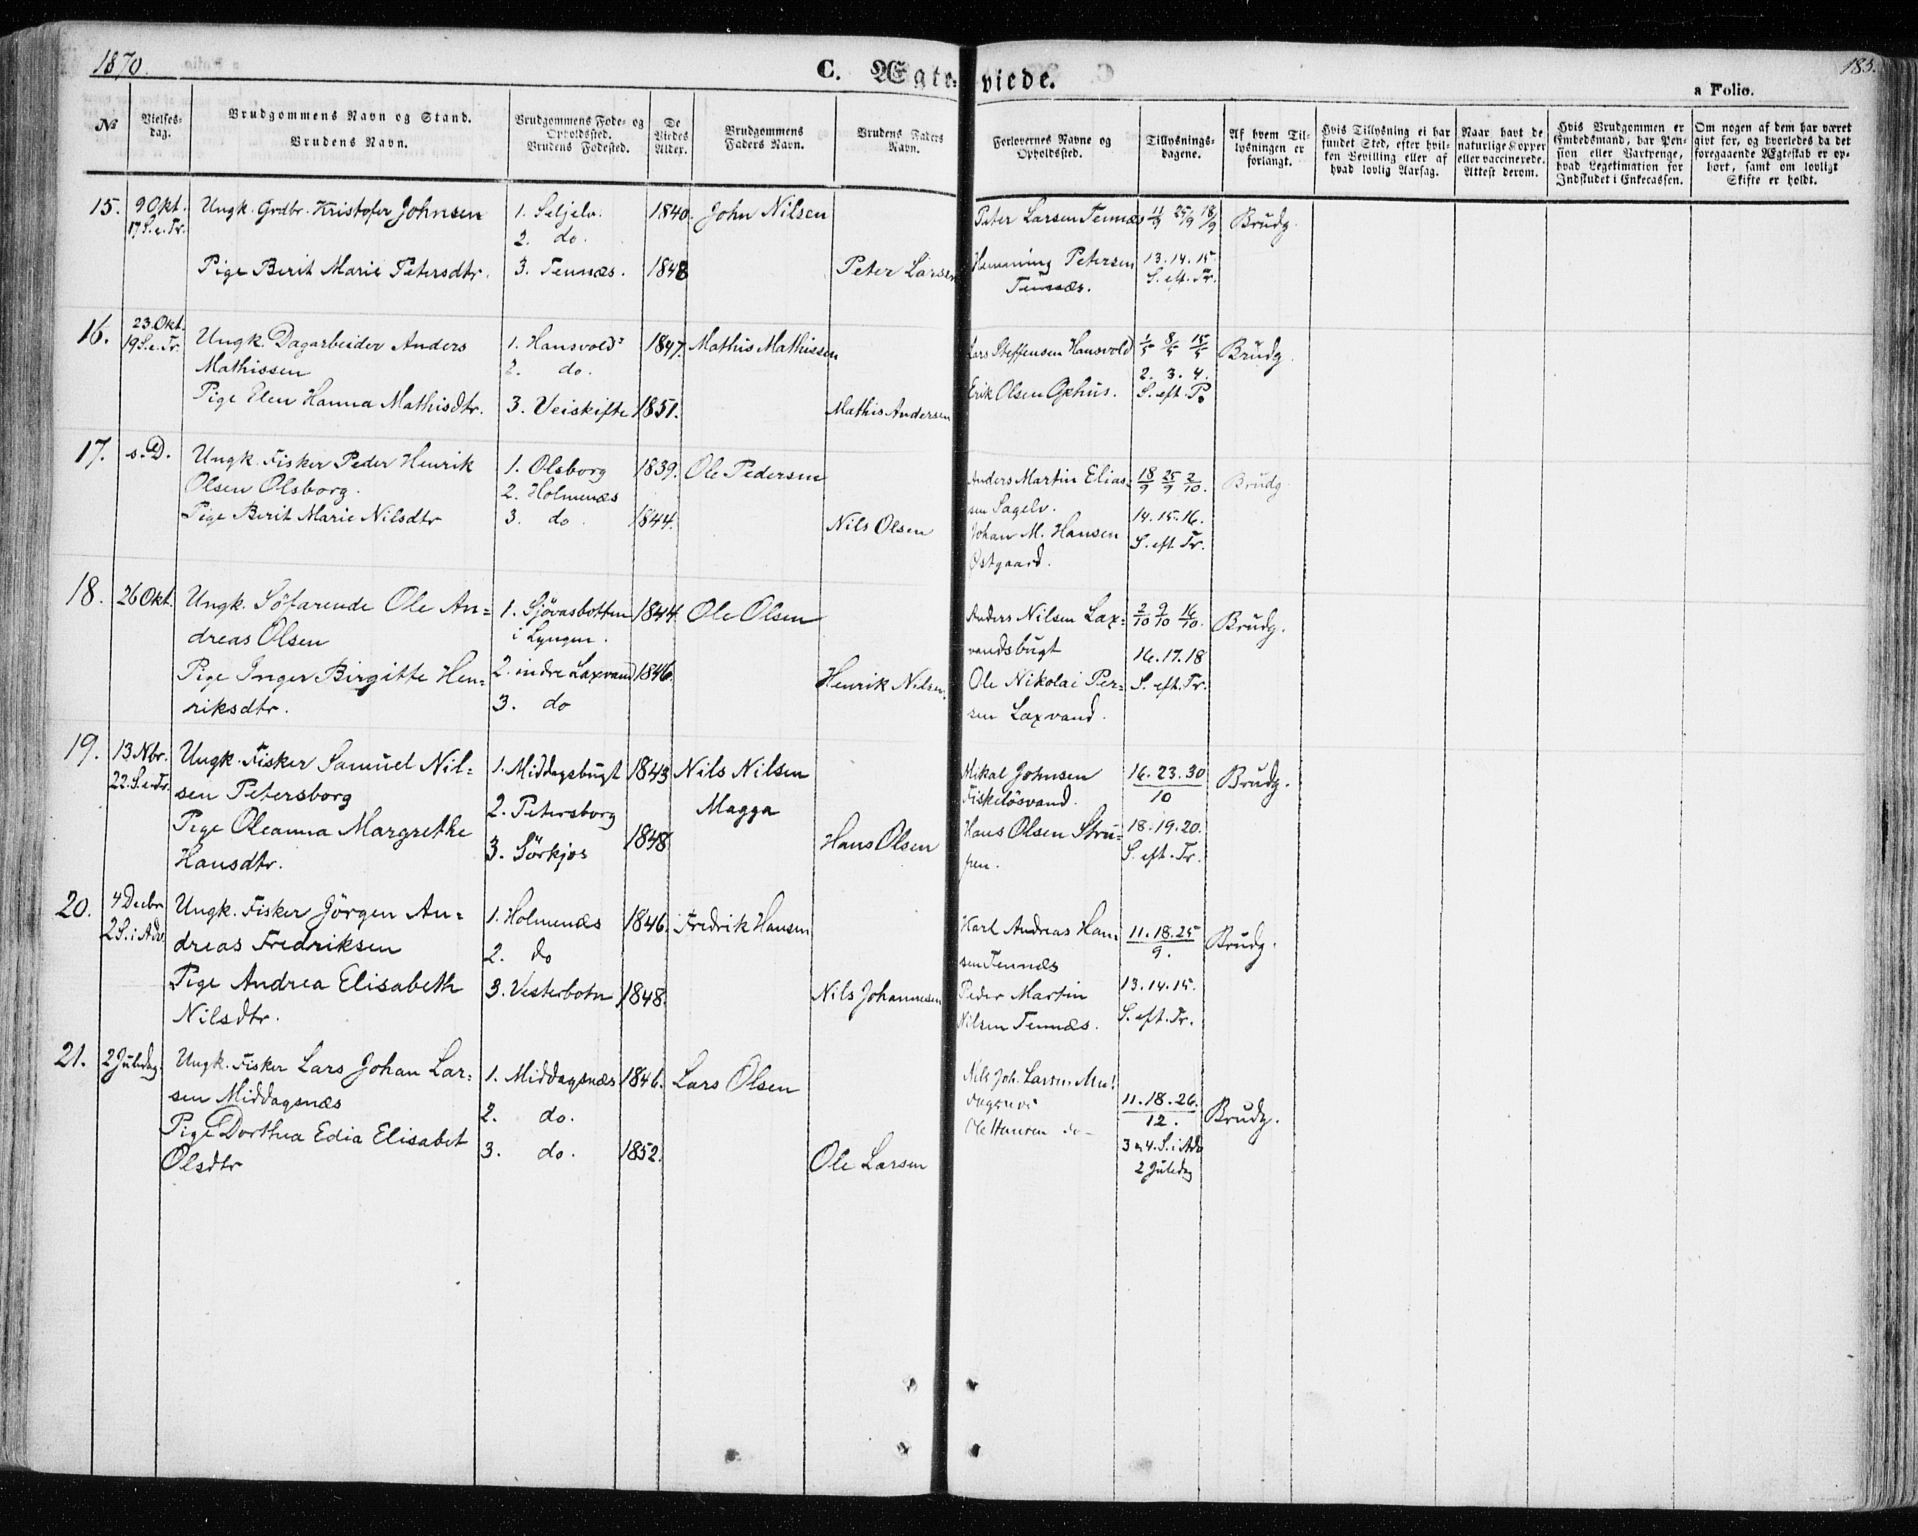 1870.
C. Ægte-viede.
185.
a Folio.
No
Vielses-dag.
Brudgommens Navn og Stand.
Brudens Navn.
Brudgommens Føde- og Opholdssted.
Brudens Fødested.
De Viedes Alder.
Brudgommens Faders Navn.
Brudens Faders Navn.
Forlovernes Navne og Opholdssted.
Tillysnings-dagene.
Af hvem Til-lysningen er forlangt.
Hvis Tillysning ei har fundet Sted, efter hvil-ken Bevilling eller af hvad lovlig Aarsag.
Naar havt de naturlige Kopper eller vaccinerede. Attest derom.
Hvis Brudgommen er Embedsmand, har Pen-sion eller Vartpenge, hvad Legitimation for Indskudet i Enkecassen.
Om nogen af dem har været givt før, og hvorledes da det foregaaende Ægteskab er op-hørt, samt om lovligt Skifte er holdt.
15. 9 Okt. Ungk. Grdbr. Kristofer Johnsen 1. Seljelv. 1840. John Nilsen Peter Larsen Tennæs 11/9 25/9 18/9 Brudg.
17 S. e. Tr. 2. do.
Pige Berit Marie Petersdtr. 3. Tennæs. 1848 Peter Larsen Hemming Petersen 13. 14. 15.
Tennæs. S. eft. Tr.
16. 23. Okt. Ungk. Dagarbeider Anders 1. Hansvold 1847. Mathis Mathissen Lars Steffensen Hansvold 1/5 8/5 15/5 Brudg.
19 S. e. Tr. Mathissen 2. do. 2. 3. 4.
Pige Elen Hanna Mathisdtr. 3. Veiskifte 1851. Mathis Andersen Erik Olsen Gjøhus. S. eft. P.
17. s. D. Ungk. Fisker Peder Henrik 1. Olsborg 1839. Ole Pedersen Anders Martin Elias- 18/9 25/9 2/10. Brudg.
Olsen Olsborg. 2. Holmenæs sen Sagelv. 14. 15. 16.
Pige Berit Marie Nilsdtr 3. do. 1844. Nils Olsen Johan M. Hansen S. eft. Tr.
Østgaard.
18. 26 Okt. Ungk. Söfarende Ole An= 1. Sjövasbotten 1844. Ole Olsen Anders Nilsen Lax= 2/10 9/10 16/10. Brudg.
dreas Olsen i Lyngen. vandsbugt 16. 17. 18
Pige Inger Birgitte Hen= 2. indre Laxvand 1846. Henrik Nilsen. Ole Nikolai Per= S. eft. Tr.
riksdtr. 3. do sen Laxvand.
19. 13 Nbr. Ungk. Fisker Samuel Nil= 1. Middagsbugt 1843 Nils Nilsen Mikal Johnsen 16. 23. 30 Brudg.
22. S. e. Tr. sen Petersborg 2. Petersborg Magga Fiskelösvand. 10
Pige Oleanna Margrethe 3. Sörkjos 1848. Hans Olsen Hans Olsen Stru= 18. 19. 20.
Hansdtr. pen. S. eft. Tr.
20. 4 Decbr Ungk. Fisker Jörgen An= 1. Holmenæs 1846. Fredrik Hansen Karl Andreas Han= 11. 18. 25 Brudg.
2 S. i Adv. dreas Fredriksen 2. do sen Tennæs 9.
Pige Andrea Elisabeth 3. Vesterbotn 1848. Nils Johannesen Peder Martin 13. 14. 15.
Nilsdtr. Nilsen Tennæs. S. eft. Tr.
21. 2 Juledag. Ungk. Fisker Lars Johan Lar= 1. Middagsnæs 1846. Lars Olsen Nils Joh. Larsen 11. 18. 26. Brudg.
sen Middagsnæs 2. do. 12.
Pige Dorthea Edia Elisabet 3. do. 1852. Ole Larsen Ole Hansen do- 3 & 4. S. i Adv
Olsdtr 2 Juledag